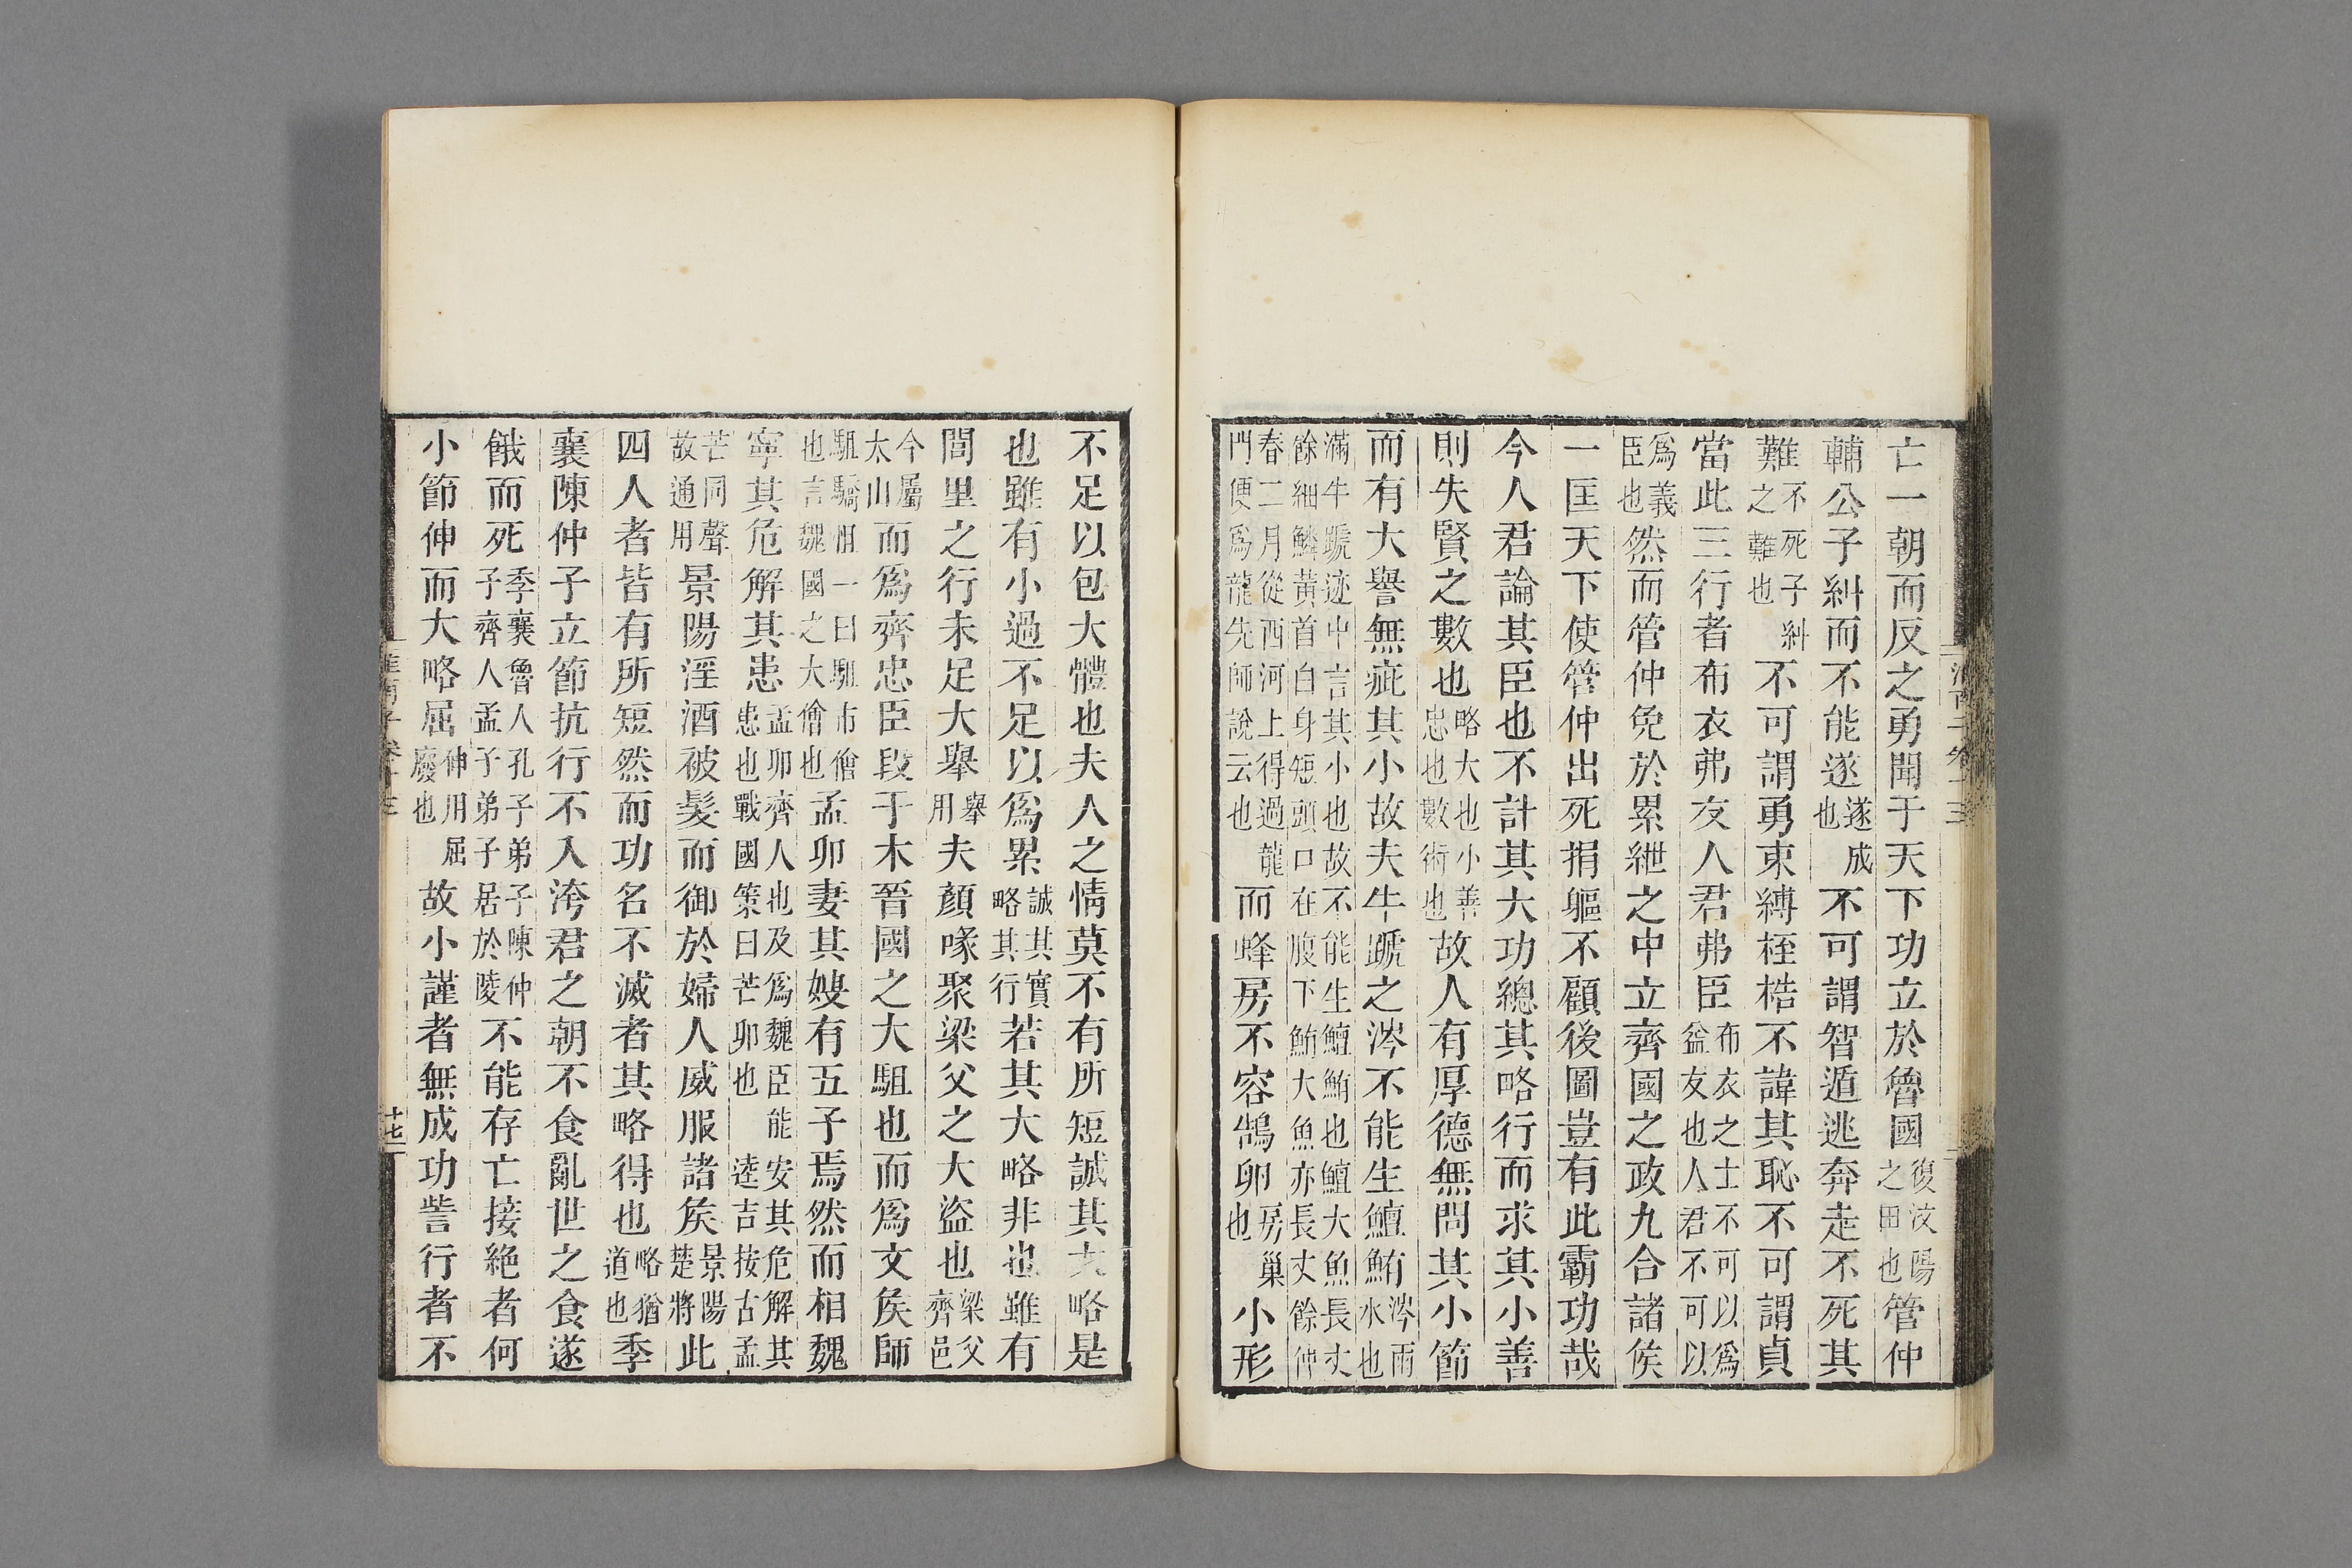 亡一朝而反之勇聞于天下功立於魯國復汶陽之田也管仲
輔公子糾而不能遂遂成也不可謂智遁逃奔走不死其
難不死子糾之難也不可謂勇束縛桎梏不諱其恥不可謂貞
當此三行者布衣弗友人君弗臣布衣之士不可以爲益友也人君不可以
爲義臣也然而管仲免於累紲之中立齊國之政九合諸侯
一匡天下使管仲出死捐軀不顧後圖豈有此霸功哉
今人君論其臣也不計其大功總其略行而求其小善
則失賢之數也略大也小善忠也數術也故人有厚德無問其小節
而有大譽無疵其小故夫牛蹏之涔不能生鱣鮪涔雨水也
滿牛蹏迹中言其小也故不能生鱣鮪也鱣大魚長丈餘細鱗黃首白身短頭口在腹下鮪大魚亦長丈餘仲
春二月從西河上得過龍門便爲龍先師說云也而蜂房不容鵠卵房巢也小形
不足以包大體也夫人之情莫不有所短誠其大略是
也雖有小過不足以爲累誠其實略其行若其大略非也雖有
閭里之行未足大舉舉用夫顏喙聚梁父之大盜也梁父齊邑
今屬太山而爲齊忠臣段于木晉國之大駔也而爲文矦師
駔驕怚一曰駔市儈也言魏國之大儈也孟卯妻其嫂有五子焉然而相魏
寧其危解其患孟卯齊人也及爲魏臣能安其危解其患也戰國策曰芒卯也逵吉按古孟
芒同聲故通用景陽淫酒被髮而御於婦人威服諸矦景陽楚將此
四人者皆有所短然而功名不滅者其略得也略猶道也季
襄陳仲子立節抗行不入洿君之朝不食亂世之食遂
餓而死季襄魯人孔子弟子陳仲子齊人孟子弟子居於陵不能存亡接絕者何
小節伸而大略屈伸用屈廢也故小謹者無成功訾行者不
淮南子卷十三
十七